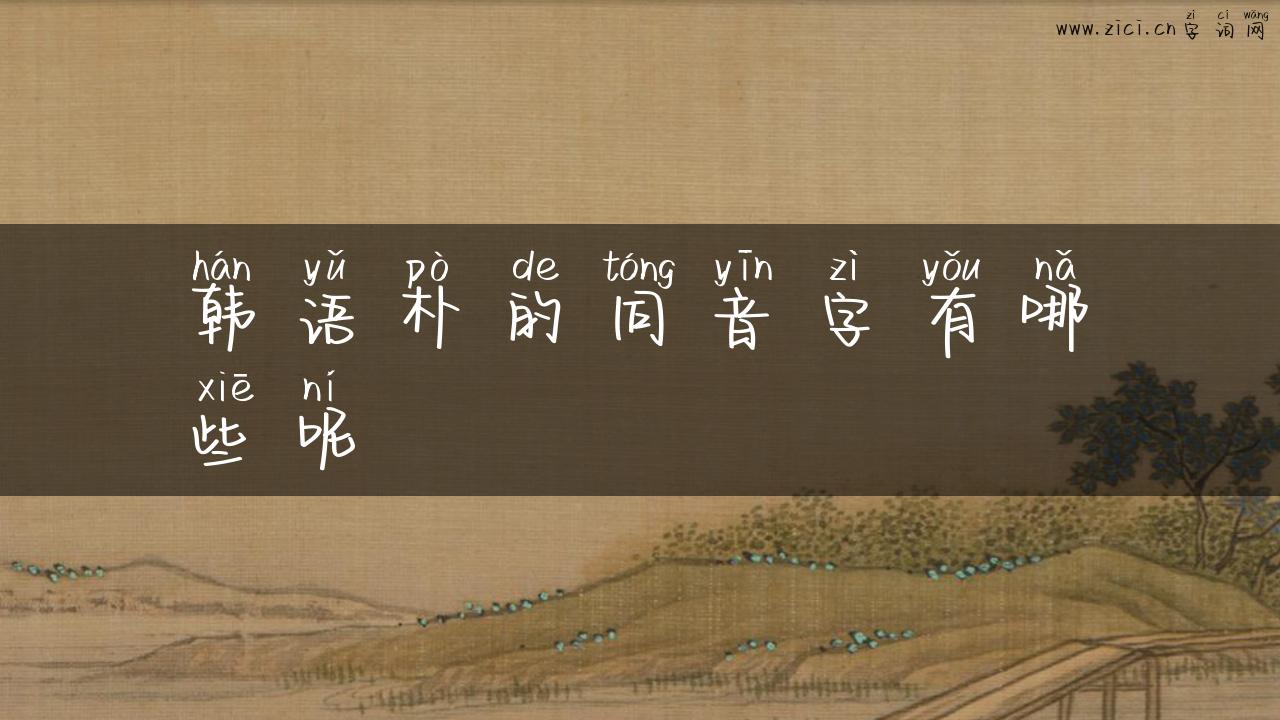 zì cí wǎng
www.zici.cn字词网
hán yǔ pò de tóng yīn zì yǒu nǎ
韩语朴的同音字有哪
xiē ní
些呢